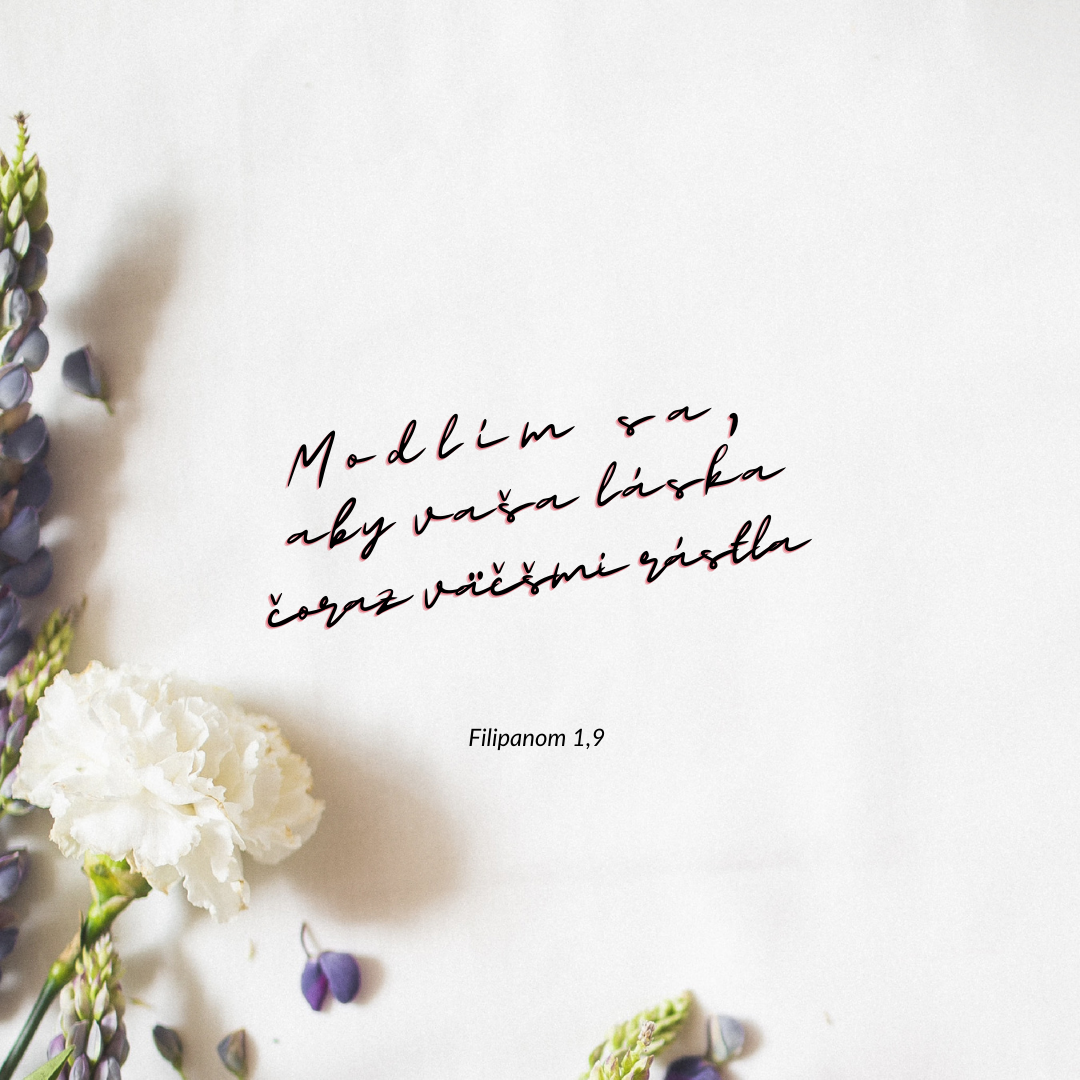 Modlím sa,
aby vaša láska
čoraz väčšmi rástla
Filipanom 1,9